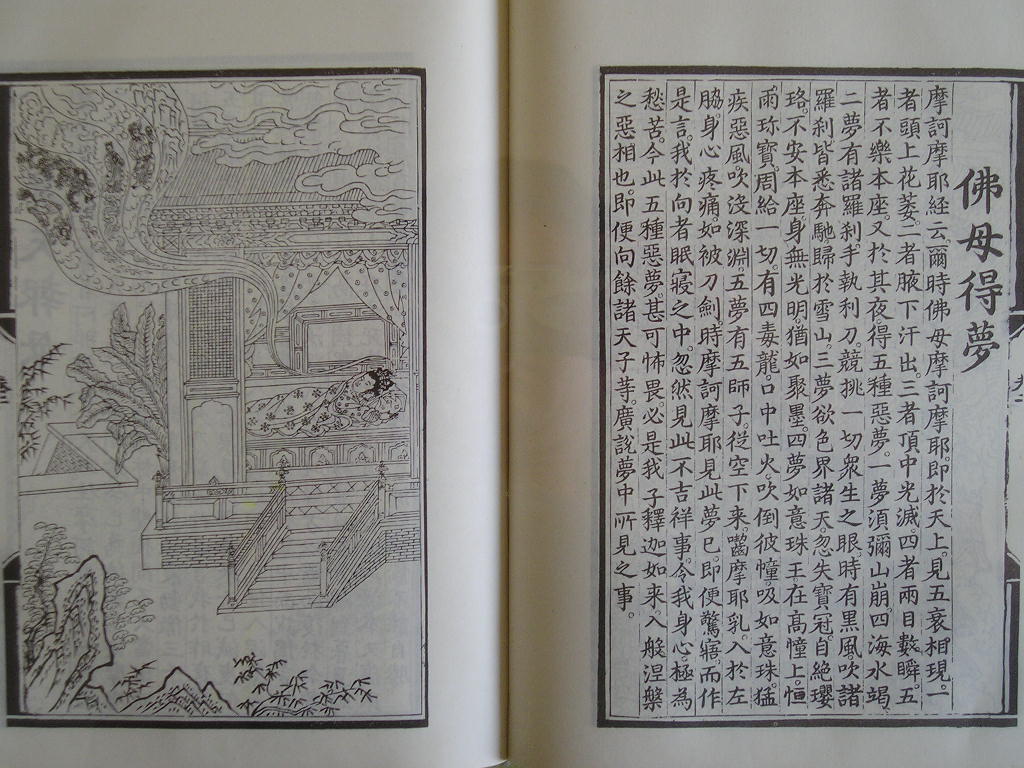 佛母得夢
摩訶摩耶経云。爾時佛母摩訶摩耶。即於天上。見五衰相現。一
者頭上花萎。二者腋下汗出。三者頂中光滅。四者兩目數瞬。五
者不樂本座。又於其夜得五種惡夢。一夢須彌山崩。四海水竭。
二夢有諸羅刹。手執利刀。競挑一切衆生之眼。時有黒風吹諸
羅刹皆悉奔馳歸於雪山。三夢欲色界諸天。忽失寶冠。自絶瓔
珞。不安本座。身無光明猶如聚墨。四夢如意珠王在高幢上。恒
雨珎寶。周給一切。有四毒龍。口中吐火。吹倒彼幢。吸如意珠。猛
疾惡風。吹沒深淵。五夢有五師子。從空下来。嚙摩耶乳。入於左
脇。身心疼痛。如被刀劍。時摩訶摩耶見此夢已。即便驚寤。而作
是言。我於向者眠寢之中。忽然見此不吉祥事。令我身心極為
愁苦。今此五種惡夢。甚可怖畏。必是我子釋迦如来入般涅槃
之惡相也。即便向餘諸天子等。廣説夢中所見之事。